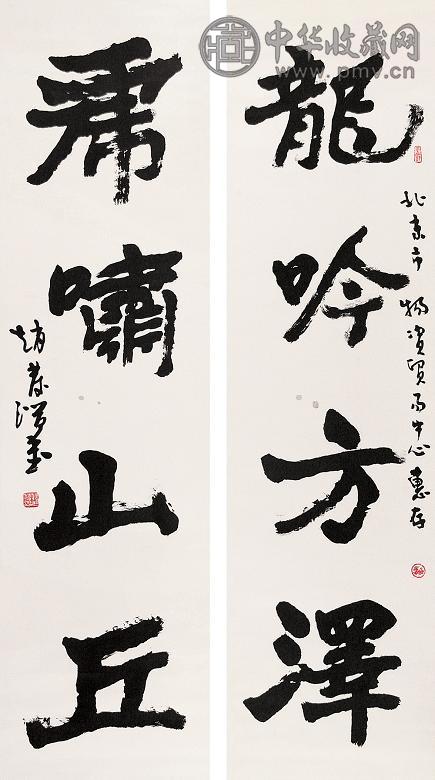 龍吟方澤
北京市物資貿易中心惠存
虎嘯山丘
中华收藏网
www.pmv.cn